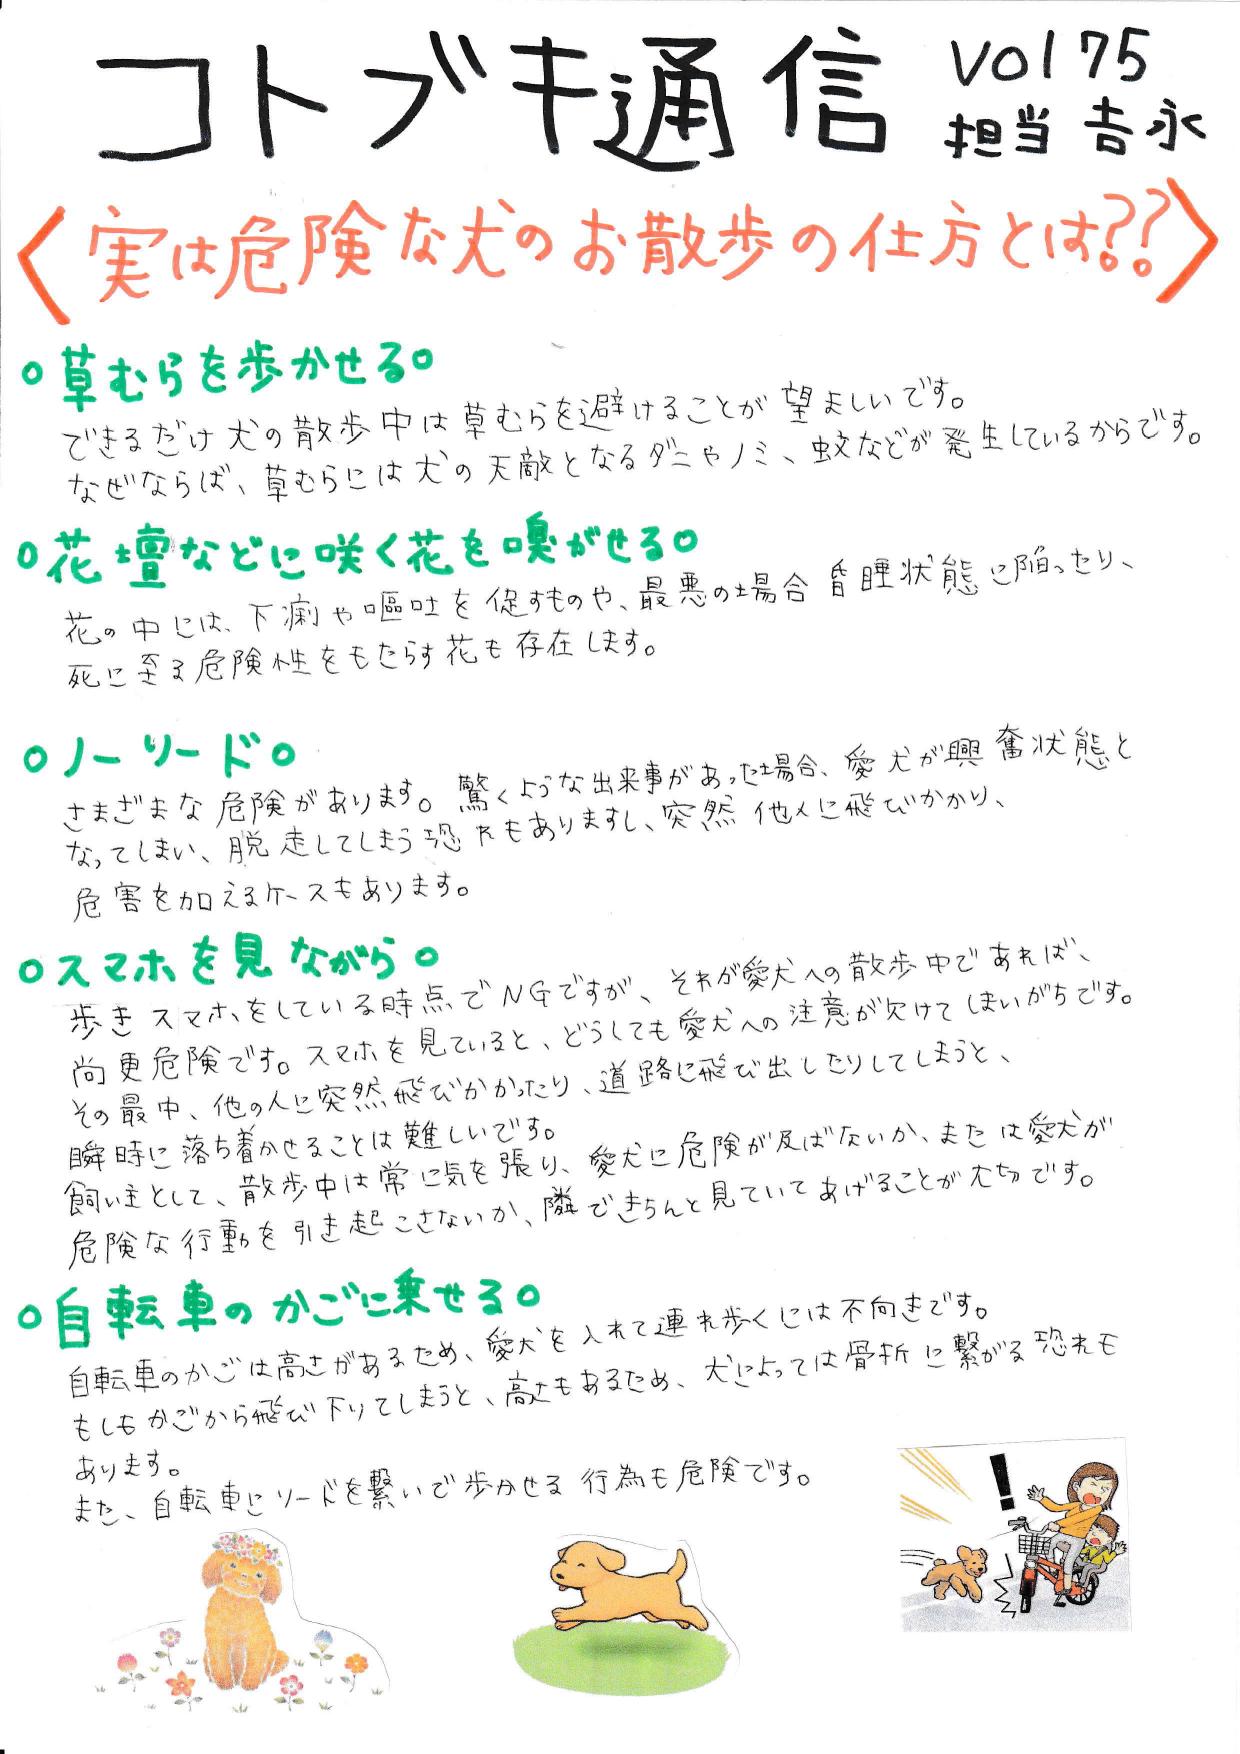 コトブキ通信
Vol 75
担当 吉永
〈実は危険な犬のお散歩の仕方とは??〉
○草むらを歩かせる○
できるだけ犬の散歩中は草むらを避けることが望ましいです。
なぜならば、草むらには犬の天敵となるダニやノミ、蚊などが発生しているからです。
○花壇などに咲く花を嗅がせる○
花の中には、下痢や嘔吐を促すものや、最悪の場合昏睡状態に陥ったり、
死に至る危険性をもたらす花も存在します。
○ノーリード○
さまざまな危険があります。驚くような出来事があった場合、愛犬が興奮状態と
なってしまい、脱走してしまう恐れもありますし、突然他人に飛びかかり、
危害を加えるケースもあります。
○スマホを見ながら○
歩きスマホをしている時点でNGですが、それが愛犬への散歩中であれば、
尚更危険です。スマホを見ていると、どうしても愛犬への注意が欠けてしまいがちです。
その最中、他の人に突然飛びかかったり、道路に飛び出したりしてしまうと、
瞬時に落ち着かせることは難しいです。
飼い主として、散歩中は常に気を張り、愛犬に危険が及ばないか、または愛犬が
危険な行動を引き起こさないか、隣できちんと見ていてあげることが大切です。
○自転車のかごに乗せる○
自転車のかごは高さがあるため、愛犬を入れて連れ歩くには不向きです。
もしもかごから飛び下りてしまうと、高さもあるため、犬によっては骨折に繋がる恐れも
あります。
また、自転車にリードを繋いで歩かせる行為も危険です。
!